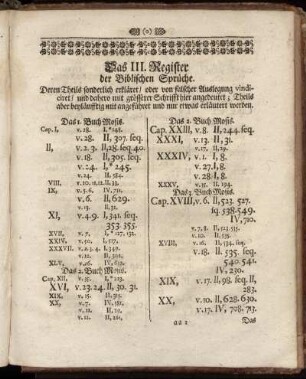 (o)
Das III. Register
der Biblischen Sprüche.
Deren Theils sonderlich erkläret/ oder von falscher Auslegung vindi-
ciret/ und dahero mit grösserer Schrifft hier angedeutet; Theils
aber beyläufftig mit angeführet und nur etwas erläutert werden.
Das 1. Buch Mosis.
Cap. I, v. 28. I,*145.
v. 28. II, 307. seq.
II, v. 2. 3. II, 28. seq. 40.
v. 18. II, 305. seq.
v. 24. I,* 245.
v. 24. II, 284.
VIII,
IX, v. 5. 6. IV, 710.
v. 6. II, 629.
v. 13. II, 32.
XI, v. 4. 9. I, 341. seq.
353. 355.
XVII, v. 7. I,* 117, 132.
XXIV, v. 50. I, 127.
XXXVIII, v. 2. 3. I, 349.
v. 22. II, 301.
XLV, v. 6. IV, 639.
Das 2. Buch Mosis.
Cap. XII, v. 35. I,* 213.
XVI, v. 23. 24. II, 30. 31.
XIX, v. 15. II, 313.
XX, v. 7. IV, 181.
v. 11. II, 20.
v. 12. II, 281.
Das 2. Buch Mosis.
Cap. XXIII, v. 8. II, 244. seq.
XXXI, v. 13. II, 31.
v. 17. II, 29.
XXXIV, v. 1. I, 8.
v. 27. I, 8.
v. 28. I, 8.
XXXV, v. 35. II, 194.
Das 3. Buch Mosis.
Cap. XVIII, v. 6. II, 523. 527.
sq. 538. 549.
IV, 710.
v. 7. 8. II, 522. 535.
v. 10. II, 539.
XVIII, v. 16. II, 534. seq.
v. 18. II, 535. seq.
540. 541.
IV, 230.
XIX, v. 17. II, 98. seq. II,
283.
XX, v. 10. II, 628. 630.
v. 17. IV, 708. 713.
aa 2 Das